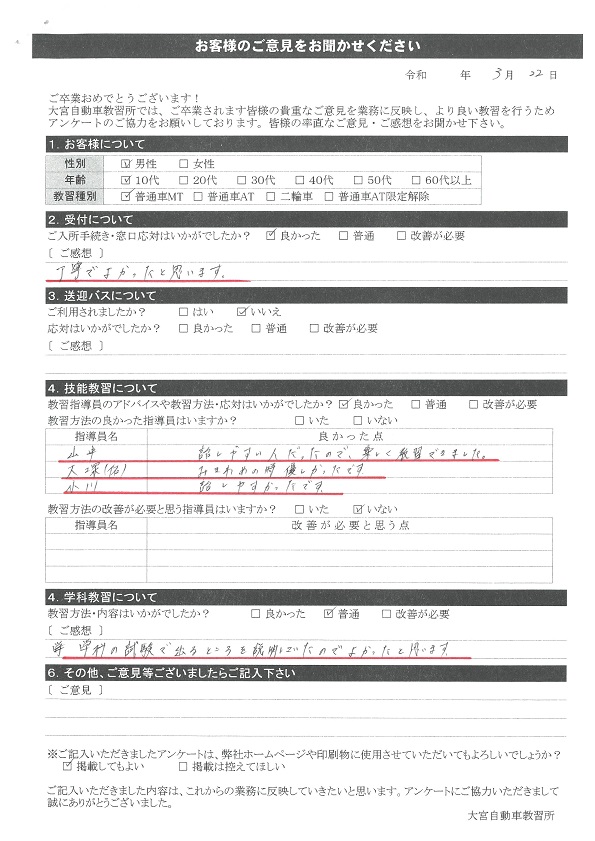 お客様のご意見をお聞かせください
令和 年 3月 22日
ご卒業おめでとうございます！
大宮自動車教習所では、ご卒業されます皆様の貴重なご意見を業務に反映し、より良い教習を行うため
アンケートのご協力をお願いしております。皆様の率直なご意見・ご感想をお聞かせ下さい。
1. お客様について
性別 ☑ 男性 □ 女性
年齢 ☑ 10代 □ 20代 □ 30代 □ 40代 □ 50代 □ 60代以上
教習種別 ☑ 普通車MT □ 普通車AT □ 二輪車 □ 普通車AT限定解除
2. 受付について
ご入所手続き・窓口応対はいかがでしたか？ ☑ 良かった □ 普通 □ 改善が必要
［ ご感想 ］
丁寧でよかったと思います。
3. 送迎バスについて
ご利用されましたか？ □ はい ☑ いいえ
応対はいかがでしたか？ □ 良かった □ 普通 □ 改善が必要
［ ご感想 ］
4. 技能教習について
教習指導員のアドバイスや教習方法・応対はいかがでしたか？ ☑ 良かった □ 普通 □ 改善が必要
教習方法の良かった指導員はいますか？ □ いた □ いない
指導員名 良かった点
話しやすい人だったので、楽しく教習できました。
大塚(佑) みきわめの時優しかったです
小川 話しやすかったです。
教習方法の改善が必要と思う指導員はいますか？ □ いた ☑ いない
指導員名 改善が必要と思う点
4. 学科教習について
教習方法・内容はいかがでしたか？ □ 良かった ☑ 普通 □ 改善が必要
［ ご感想 ］
学科の試験で出るところを説明していたのでよかったと思います。
6. その他、ご意見等ございましたらご記入下さい
［ ご意見 ］
※ご記入いただきましたアンケートは、弊社ホームページや印刷物に使用させていただいてもよろしいでしょうか？
☑ 掲載してもよい □ 掲載は控えてほしい
ご記入いただきました内容は、これからの業務に反映していきたいと思います。アンケートにご協力いただきまして
誠にありがとうございました。
大宮自動車教習所